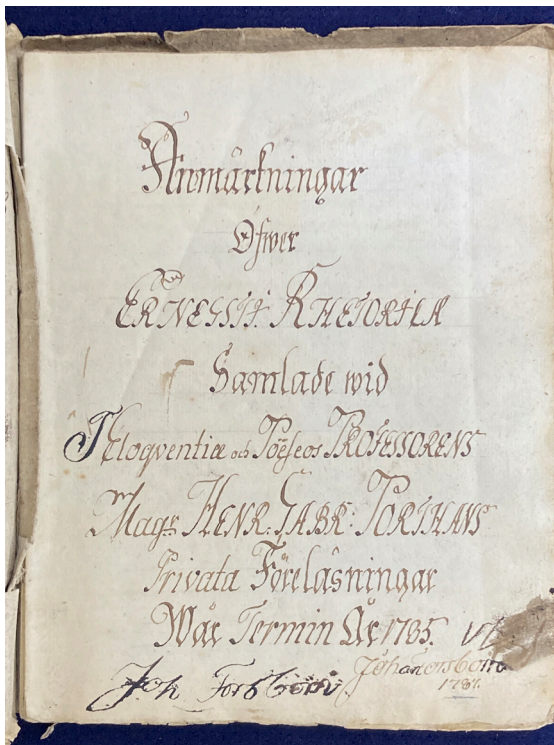 Anmärkningar
Öfver
ERNESTII RHETORICA
Samlade wid
Eloqventiæ och Poëseos PROFESSORENS
Magr HENR. GABR: PORTHANS
Privata Föreläsningar
Wår Termin År 1785.
Joh Forsbom
1787.